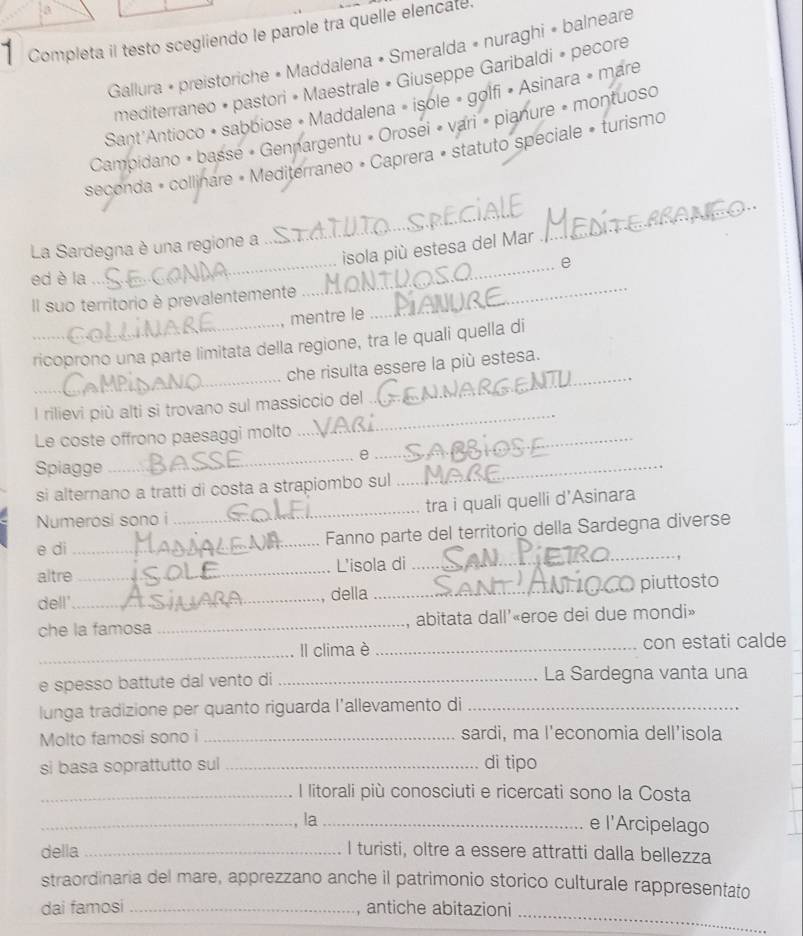 1 Completa il testo scegliendo le parole tra quelle elencate.
Gallura • preistoriche • Maddalena • Smeralda • nuraghi • balneare
mediterraneo • pastori • Maestrale • Giuseppe Garibaldi • pecore
Sant'Antioco • sabbiose • Maddalena • isole • golfi • Asinara • mare
Campidano • basse • Gennargentu • Orosei • vari • pianure • montuoso
seconda • collinare • Mediterraneo • Caprera • statuto speciale • turismo
La Sardegna è una regione a STATUTO SPECIALE
ed è la SECONDA isola più estesa del Mar MEDITERRANEO
Il suo territorio è prevalentemente MONTUOSO e
COLLINARE, mentre le PIANURE
ricoprono una parte limitata della regione, tra le quali quella di
CAMPIDANO che risulta essere la più estesa.
I rilievi più alti si trovano sul massiccio del GENNARGENTU
Le coste offrono paesaggi molto VARI
Spiagge BASSE e SABBIOSE
si alternano a tratti di costa a strapiombo sul MARE
Numerosi sono i GOLFI tra i quali quelli d'Asinara
e di MADDALENA Fanno parte del territorio della Sardegna diverse
altre ISOLE L'isola di SAN PIETRO,
dell' ASINARA, della SANT'ANTIOCO piuttosto
che la famosa, abitata dall'«eroe dei due mondi»
Il clima è con estati calde
e spesso battute dal vento di La Sardegna vanta una
lunga tradizione per quanto riguarda l'allevamento di
Molto famosi sono i sardi, ma l'economia dell'isola
si basa soprattutto sul di tipo
I litorali più conosciuti e ricercati sono la Costa
, la e l'Arcipelago
della I turisti, oltre a essere attratti dalla bellezza
straordinaria del mare, apprezzano anche il patrimonio storico culturale rappresentato
dai famosi, antiche abitazioni